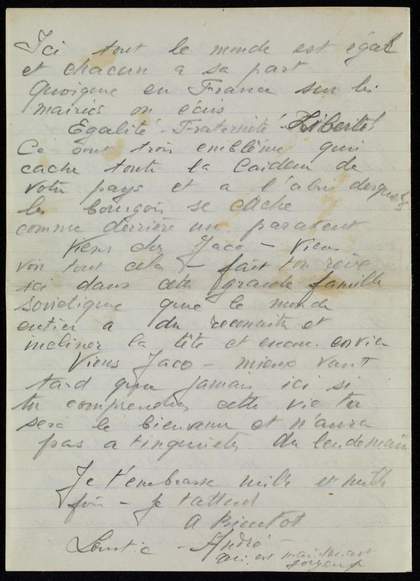 Ici tout le monde est égal
et chacun a sa part
Quoique en France sur les
mairies on écris
Egalité - Fraternité - Liberté
Ce sont trois emblème qui
cache toute la laideur de
votre pays et a l'abri desquels
les bourgois se cache
comme derrière un paravent
Viens cher Jaco - Viens
voir tout cela - fait ton rêve
ici dans cette grande famille
soviétique que le monde
entier a du reconnaitre et
incliner la tête et encore envie
Viens Jaco - mieux vaut
tard que jamais ici si
tu comprendra cette vie tu
sera le bienvenu et n'aura
pas a t'inquieter du lendemain
Je t'embrasse mille et mille
fois - je t'attend
A Bientot
André -
qui est maintenant